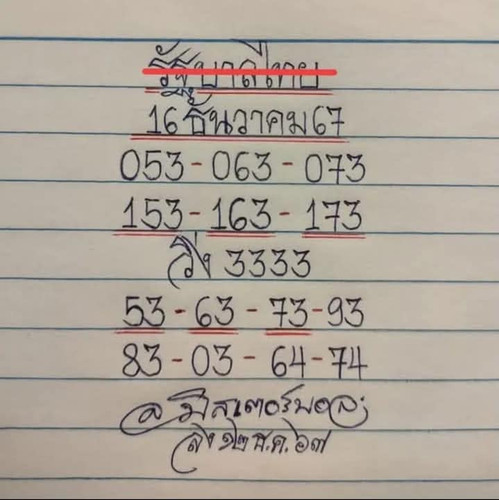 รัฐบาลไทย
16 ธันวาคม 67
053 - 063 - 073
153 - 163 - 173
วิ่ง 3333
53 - 63 - 73 - 93
83 - 03 - 64 - 74
อ มิสเตอร์บอล
๑๒ ธ.ค. ๖๗